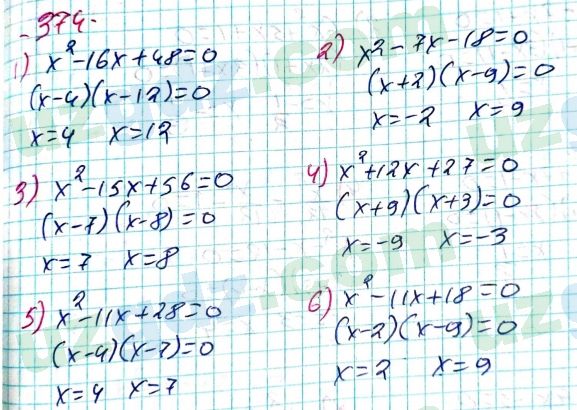 -374.
1) x²-16x+48=0
(x-4)(x-12)=0
x=4 x=12
2) x²-7x-18=0
(x+2)(x-9)=0
x=-2 x=9
3) x²-15x+56=0
(x-7)(x-8)=0
x=7 x=8
4) x²+12x+27=0
(x+9)(x+3)=0
x=-9 x=-3
5) x²-11x+28=0
(x-4)(x-7)=0
x=4 x=7
6) x²-11x+18=0
(x-2)(x-9)=0
x=2 x=9